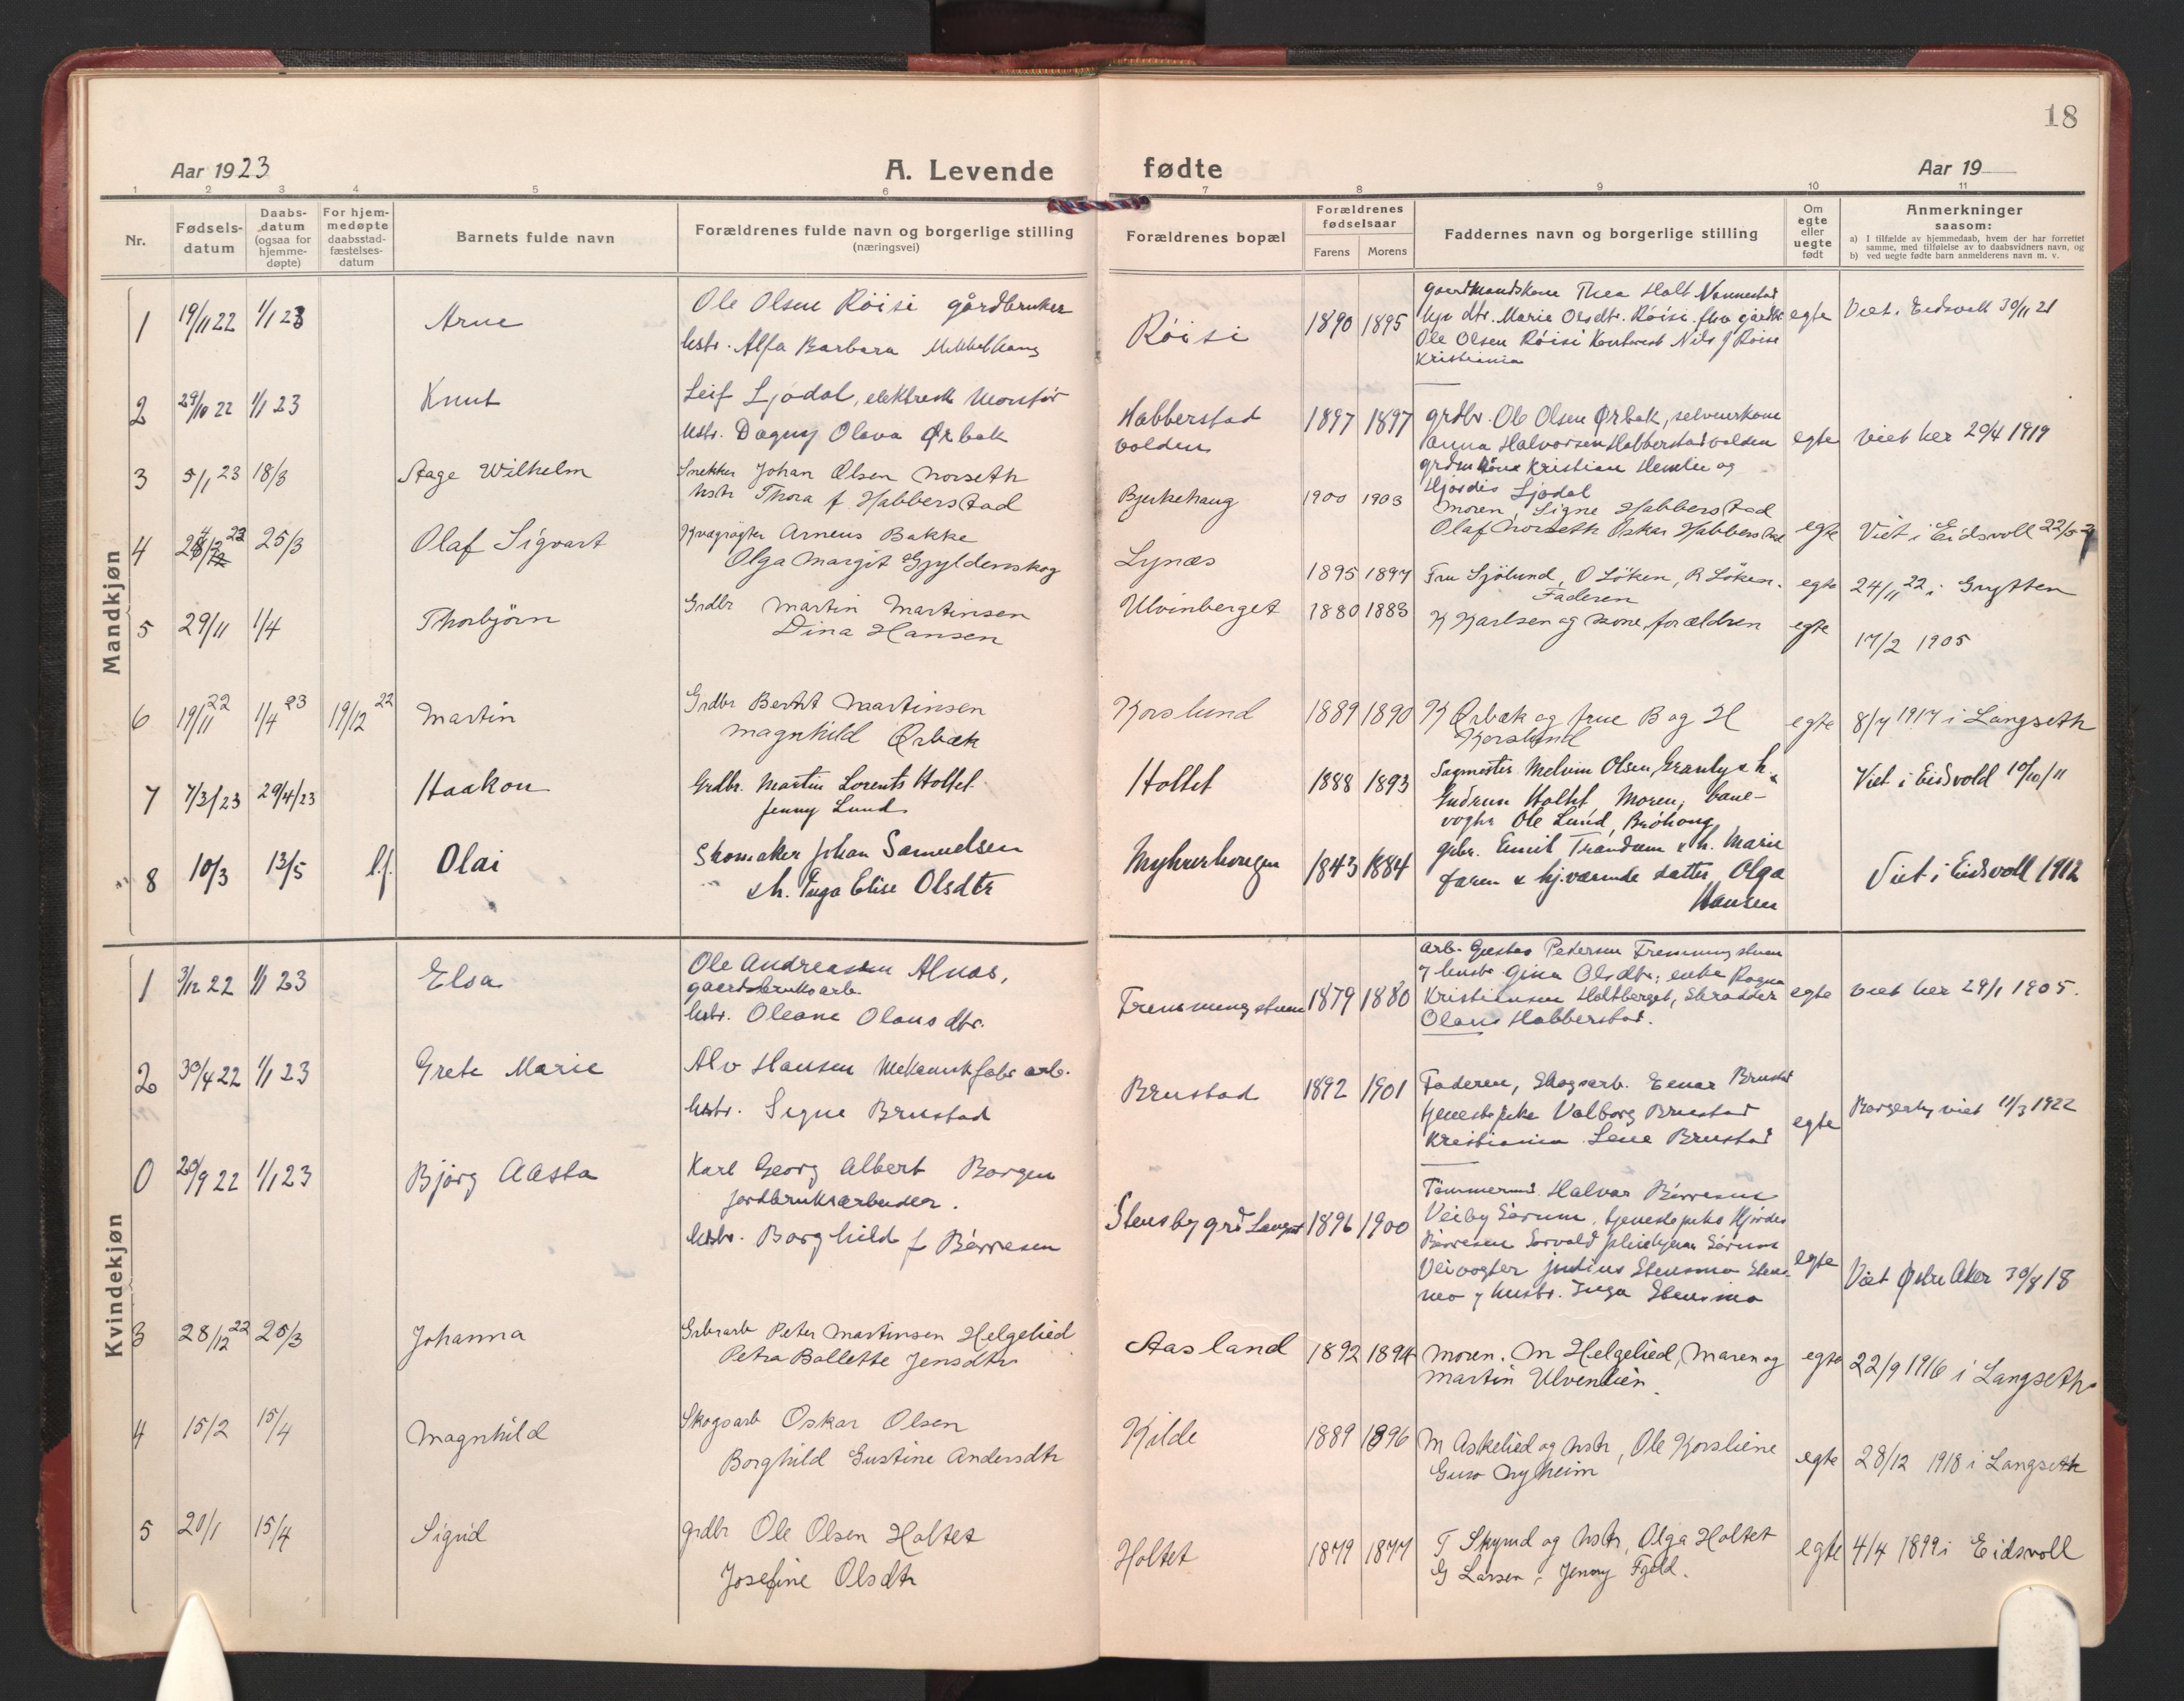 18
Aar 1923
A. Levende
fødte
Aar 19
1 2 3 4 5 6 7 8 9 10 11
Nr.
Fødsels-
datum
Daabs-
datum
(ogsaa for
hjemme-
døpte)
For hjem-
medøpte
daabsstad-
fæstelses-
datum
Barnets fulde navn
Forældrenes fulde navn og borgerlige stilling
(næringsvei)
Forældrenes bopæl
Forældrenes
fødselsaar
Farens Morens
Faddernes navn og borgerlige stilling
Om
egte
eller
uegte
født
Anmerkninger
saasom:
a) I tilfælde av hjemmedaab, hvem der har forrettet
samme, med tilføielse av to daabsvidners navn, og
b) ved uegte fødte barn anmelderens navn m. v.
Mandkjøn
1 19/11 22 1/1 23 Arne
Ole Olsen Röisi gårdbruker
hstr. Alfa Barbara
Röisi 1890 1895
gaardmandskone Thea Holt Nannestad
dtr. Marie Olsdtr. Röisi
Ole Olsen Röisi Nils J Röise
Kristiania
egte
Viet i Eidsvoll 30/11 21
2 29/10 22 1/1 23 Knut
Leif Ljødal, elektrisk Montør
hstr. Dagny Olava Ørbak
Habberstad
volden
1897 1897
grdbr. Ole Olsen Ørbak,
Anna Halvorsen Habberstadvolden
Kristian Hemlie og
Hjørdis Ljødal
egte
Viet her 20/4 1919
3 5/1 23 18/3 Aage Wilhelm
Snekker Johan Olsen Norseth
hstr Thora f. Habberstad
Bjerkehaug 1900 1903
Moren, Signe Habberstad
Olaf Norseth Oskar Habberstad
egte
Viet i Eidsvoll 22/5
4 25/3 Olaf Sigvart
Kvægrøgter Arneus Bakke
Olga Margit Gyldenskog
Lynæs 1895 1897
Fru Sjölund, O Löken, R Löken.
Faderen
egte
24/11 22 i Grytten
5 29/11 1/4 Thorbjörn
Grdbr Martin Martinsen
Dina Hansen
Ulvinberget 1880 1883
K Karlsen og kone, forældren
egte
17/2 1905
6 19/11 22 1/4 23 19/12 22 Martin
Grdbr Berth Martinsen
Magnhild Ørbæk
Korslund 1889 1890
K Ørbæk og frue B og H
Korslund
egte
8/7 1917 i Langseth
7 7/3/23 29/4/23 Haakon
Grdbr. Martin Lorents Holtet
Jenny Lund
Holtet 1888 1893
Sagmester Melvin Olsen, Granly & h.
Gudrun Holtet, Moren, bane-
vogter Ole Lund,
Viet i Eidsvold 10/10/11
8 10/3 13/5 l.f. Olai
Skomaker Johan Samuelsen
& h. Inga Elise Olsdtr
Myhrerhougen 1843 1884
grbr. Emil Trandum & h. Marie
Faren & hj.værende datter Olga
Hansen
Viet i Eidsvoll 1912
Kvindekjøn
1 3/12 22 1/1 23 Elsa
Ole Andreassen Alnæs,
gaardsbruksarb.
hstr. Oleane Olausdtr.
Fremmingstuen 1879 1880
arb. Gustav Pedersen Fremmingstuen
& hustr. Gina Olsdtr; enke Ragna
Kristiansen Holtberget, Skrædder
Olaus Habberstad.
egte
Viet her 29/1 1905.
2 30/4 22 1/1 23 Grete Marie
Alv Hansen Mekanikfabr arb.
hstr. Signe Brustad
Brustad 1892 1901
Faderen, Skogsarb. Einar Brustad
tjenestepike Valborg Brustad
Kristiania Lene Brustad
egte
Borgerlig viet 11/3 1922
0 20/9 22 1/1 23 Bjørg Aasta
Karl Georg Albert Borgen
jordbruksarbeider.
hstr. Borghild f Börresen
Stensbygrd Langset 1896 1900
Tömmermd. Halvor Börresen
Veiby Sörum, tjenestepike Hjördis
Börresen Sörum
Veivogter Julius Stensmo Stens-
mo & hustr. Inga Stensmo
egte
Viet Østre Aker 30/8 18
3 28/12 22 25/3 Johanna
Grbrarb Peter Martinsen Helgelied
Petra Bollette Jensdtr
Aasland 1892 1894
Moren. M Helgelied, Maren og
Martin Ulvenlien.
egte
22/9 1916 i Langseth
4 15/2 15/4 Magnhild
Skogsarb Oskar Olsen
Borghild Gustine Andersdtr
Kilde 1889 1896
M Askelied og hstr, Ole Korsliene
Guro Nyheim
egte
28/12 1918 i Langseth
5 20/1 15/4 Sigrid
grdbr Ole Olsen Holtet
Josefine Olsdtr
Holtet 1879 1877
T Skyrud og hstr, Olga Holtet
G Larsen, Jenny Fjeld.
egte
4/4 1899 i Eidsvoll